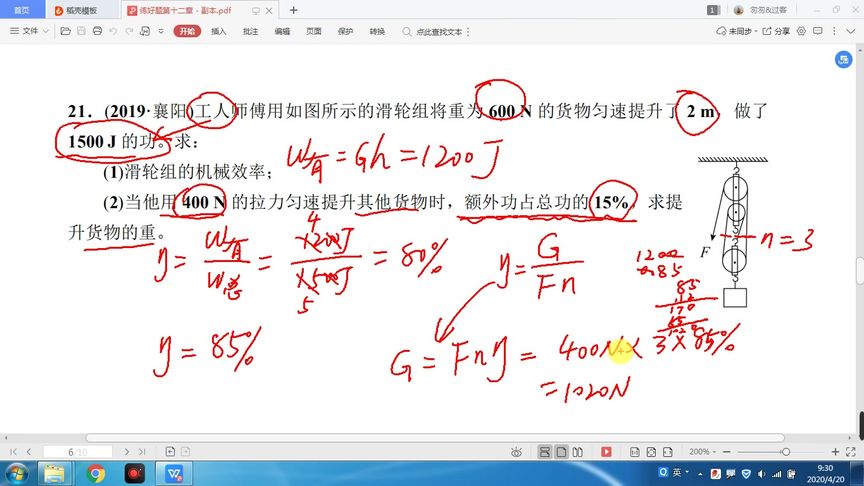 首页
稻壳模板
练好题第十二章 - 副本.pdf
1
匆匆&过客
文件
开始
插入
批注
编辑
页面
保护
转换
点此查找文本
未同步
分享
21. (2019·襄阳)工人师傅用如图所示的滑轮组将重为 600 N 的货物匀速提升了 2 m，做了
1500 J 的功。求：
W有=Gh=1200J
(1)滑轮组的机械效率；
(2)当他用 400 N 的拉力匀速提升其他货物时，额外功占总功的 15%，求提
升货物的重。
F
n=3
η=W有/W总=1200J/1500J=80%
4
5
η=G/Fn
1200
85
η=85%
G=Fnη=400N×3×85%
=1020N
6/10
200%
英
9:30
2020/4/20